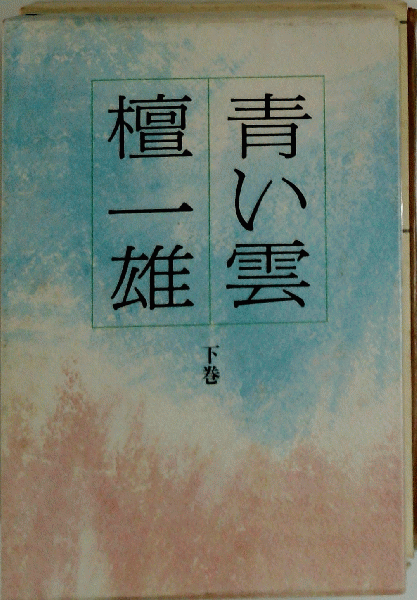 青い雲
檀一雄
下巻